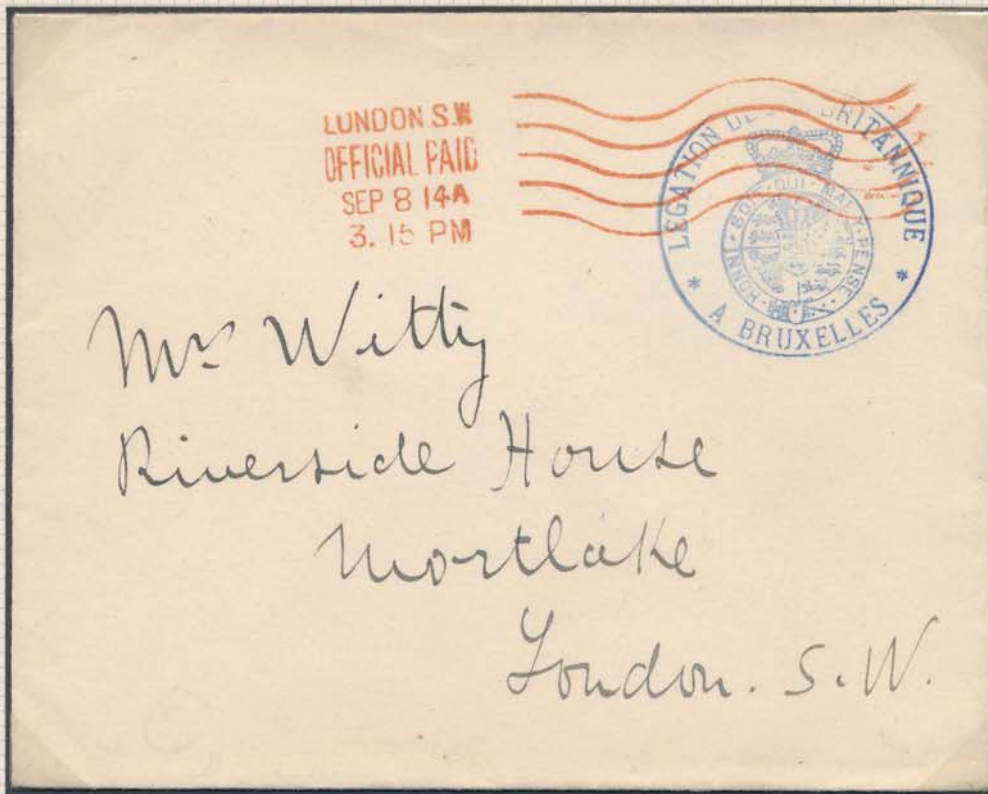 LONDON. S.W
OFFICIAL PAID
SEP 8 14A
3. 15 PM
LEGATION DE BRITANNIQUE
* A BRUXELLES *
HONNI · SOIT · QUI · MAL · Y · PENSE
Mr Witty
Riverside House
Mortlake
London. S.W.